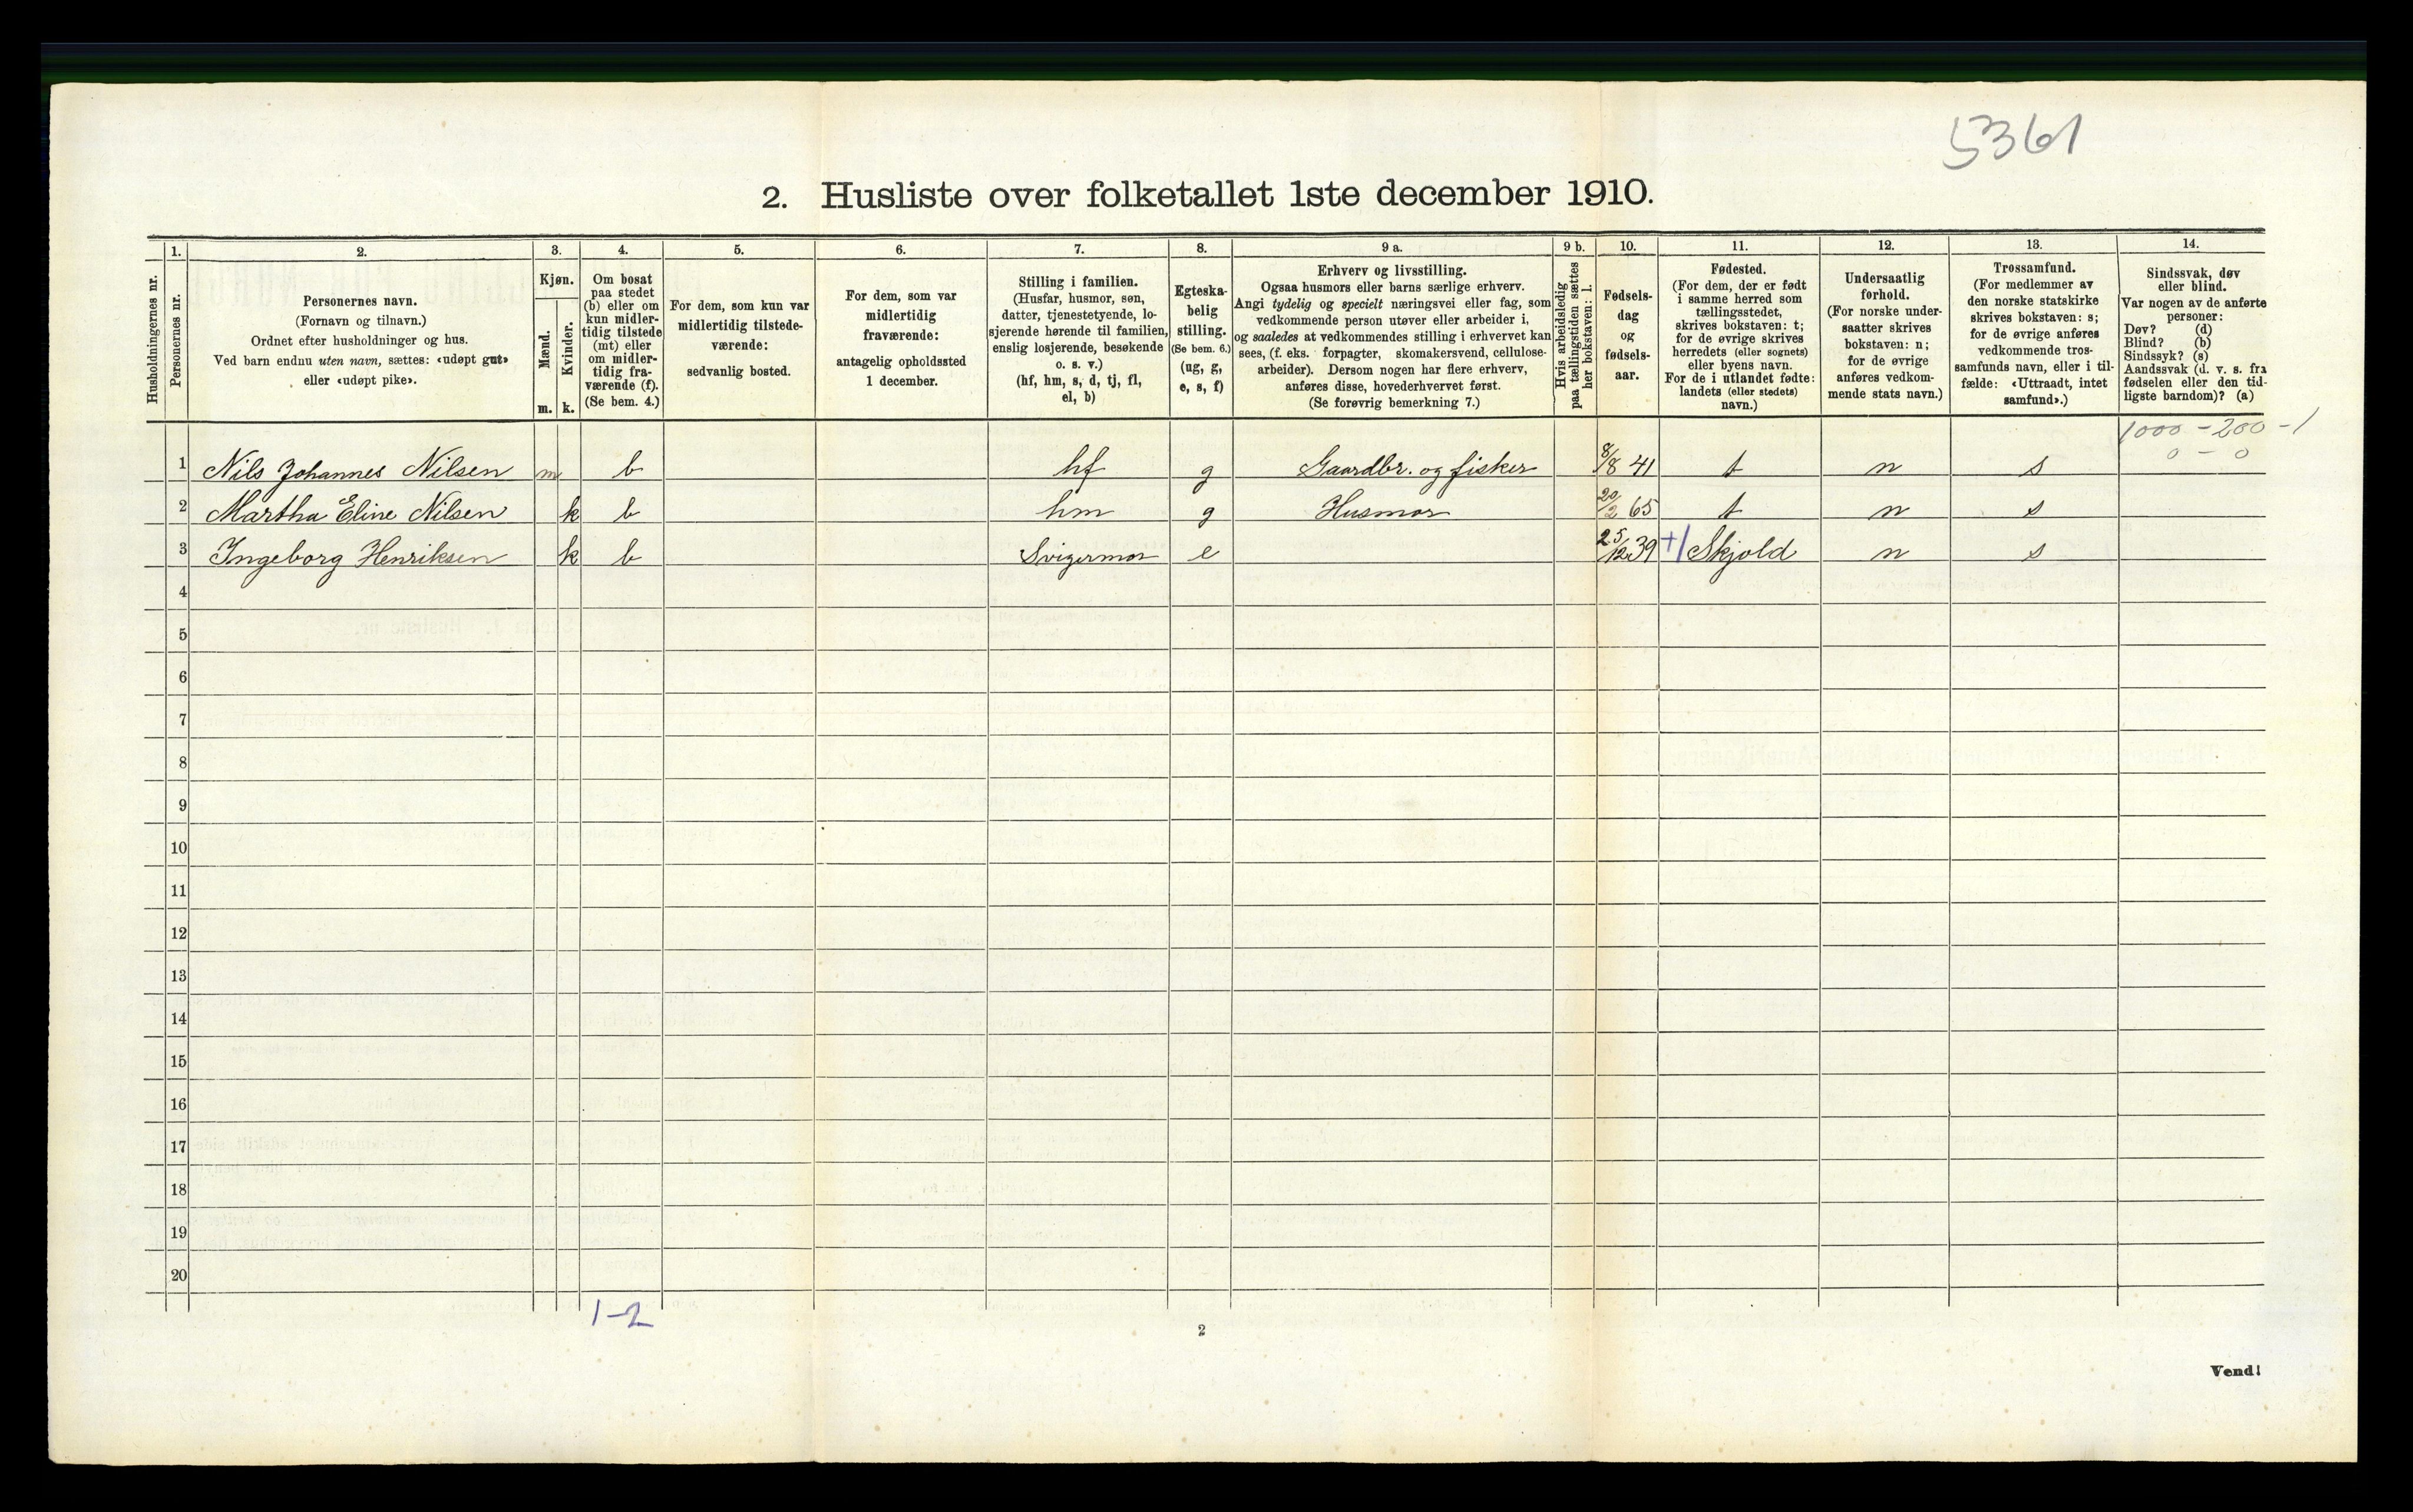 5361
2. Husliste over folketallet 1ste december 1910.
Husholdningernes nr.
1.
Personernes nr.
2.
Personernes navn.
(Fornavn og tilnavn.)
Ordnet efter husholdninger og hus.
Ved barn endnu uten navn, sættes: «udøpt gut»
eller «udøpt pike».
3.
Kjøn.
Mænd.
Kvinder.
m. k.
4.
Om bosat
paa stedet
(b) eller om
kun midler-
tidig tilstede
(mt) eller
om midler-
tidig fra-
værende (f).
(Se bem. 4.)
5.
For dem, som kun var
midlertidig tilstede-
værende:
sedvanlig bosted.
6.
For dem, som var
midlertidig
fraværende:
antagelig opholdssted
1 december.
7.
Stilling i familien.
(Husfar, husmor, søn,
datter, tjenestetyende, lo-
sjerende hørende til familien,
enslig losjerende, besøkende
o. s. v.)
(hf, hm, s, d, tj, fl,
el, b)
8.
Egteska-
belig
stilling.
(Se bem. 6.)
(ug, g,
e, s, f)
9 a.
Erhverv og livsstilling.
Ogsaa husmors eller barns særlige erhverv.
Angi tydelig og specielt næringsvei eller fag, som
vedkommende person utøver eller arbeider i,
og saaledes at vedkommendes stilling i erhvervet kan
sees, (f. eks. forpagter, skomakersvend, cellulose-
arbeider). Dersom nogen har flere erhverv,
anføres disse, hovederhvervet først.
(Se forøvrig bemerkning 7.)
9 b.
Hvis arbeidsledig
paa tællingstiden sættes
her bokstaven: l.
10.
Fødsels-
dag
og
fødsels-
aar.
11.
Fødested.
(For dem, der er født
i samme herred som
tællingsstedet,
skrives bokstaven: t;
for de øvrige skrives
herredets (eller sognets)
eller byens navn.
For de i utlandet fødte:
landets (eller stedets)
navn.)
12.
Undersaatlig
forhold.
(For norske under-
saatter skrives
bokstaven: n;
for de øvrige
anføres vedkom-
mende stats navn.)
13.
Trossamfund.
(For medlemmer av
den norske statskirke
skrives bokstaven: s;
for de øvrige anføres
vedkommende tros-
samfunds navn, eller i til-
fælde: «Uttraadt, intet
samfund».)
14.
Sindssvak, døv
eller blind.
Var nogen av de anførte
personer:
Døv? (d)
Blind? (b)
Sindssyk? (s)
Aandssvak (d. v. s. fra
fødselen eller den tid-
ligste barndom)? (a)
1000 - 200 - 1
0 - 0
1 Nils Johannes Nilsen m b hf g Gaardbr. og fisker 8/8 41 t n s
2 Martha Eline Nilsen k b hm g Husmor 20/2 65 t n s
3 Ingeborg Henriksen k b Svigermor e 25/12 39 +1 Skjold n s
4
5
6
7
8
9
10
11
12
13
14
15
16
17
18
19
20
1-2
2
Vend!